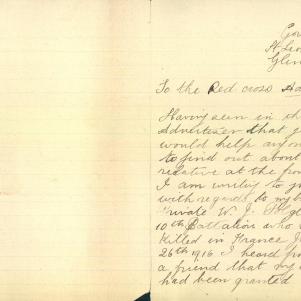 Gov
St Leo
Glen
To the Red cross
Having seen in th
Advertizer that
would help anyon
to find out about
relative at the fron
I am writing to y
with regards to my b
Private W. J.
10th Battalion who w
killed in France J
26th 1916 I heard fro
a friend that my
had been granted